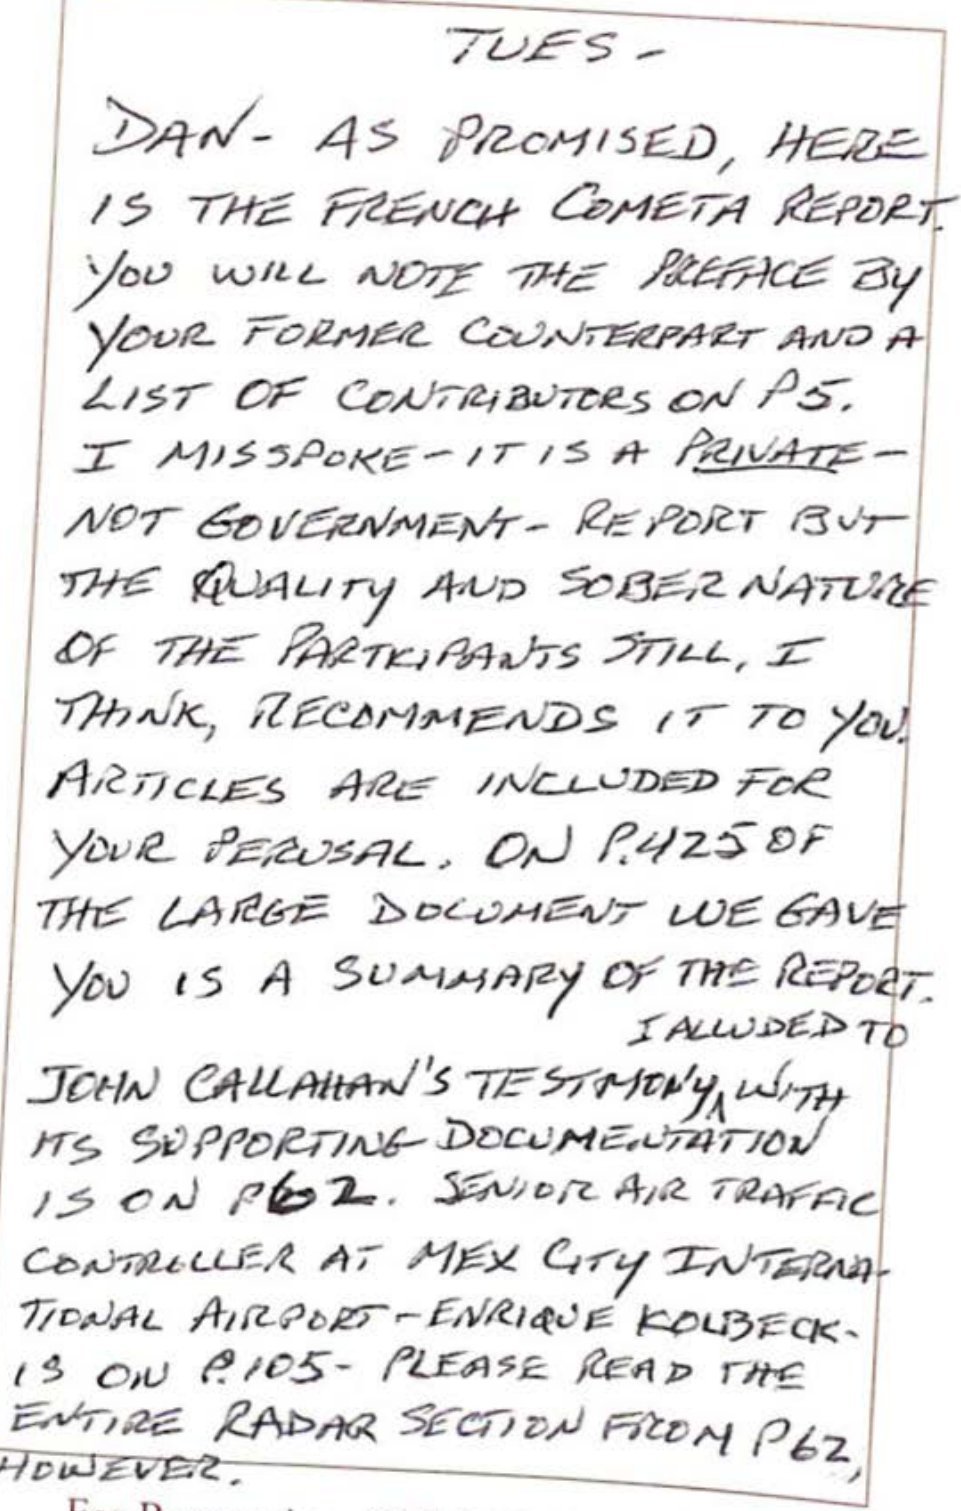 TUES -
DAN - AS PROMISED, HERE
IS THE FRENCH COMETA REPORT.
YOU WILL NOTE THE PREFACE BY
YOUR FORMER COUNTERPART AND A
LIST OF CONTRIBUTORS ON P5.
I MISSPOKE - IT IS A PRIVATE -
NOT GOVERNMENT - REPORT BUT
THE QUALITY AND SOBER NATURE
OF THE PARTICIPANTS STILL, I
THINK, RECOMMENDS IT TO YOU.
ARTICLES ARE INCLUDED FOR
YOUR PERUSAL. ON P.425 OF
THE LARGE DOCUMENT WE GAVE
YOU IS A SUMMARY OF THE REPORT.
I ALLUDED TO
JOHN CALLAHAN'S TESTIMONY, WITH
ITS SUPPORTING DOCUMENTATION
IS ON P62. SENIOR AIR TRAFFIC
CONTROLLER AT MEX CITY INTERNA-
TIONAL AIRPORT - ENRIQUE KOLBECK -
IS ON P.105 - PLEASE READ THE
ENTIRE RADAR SECTION FROM P62,
HOWEVER.